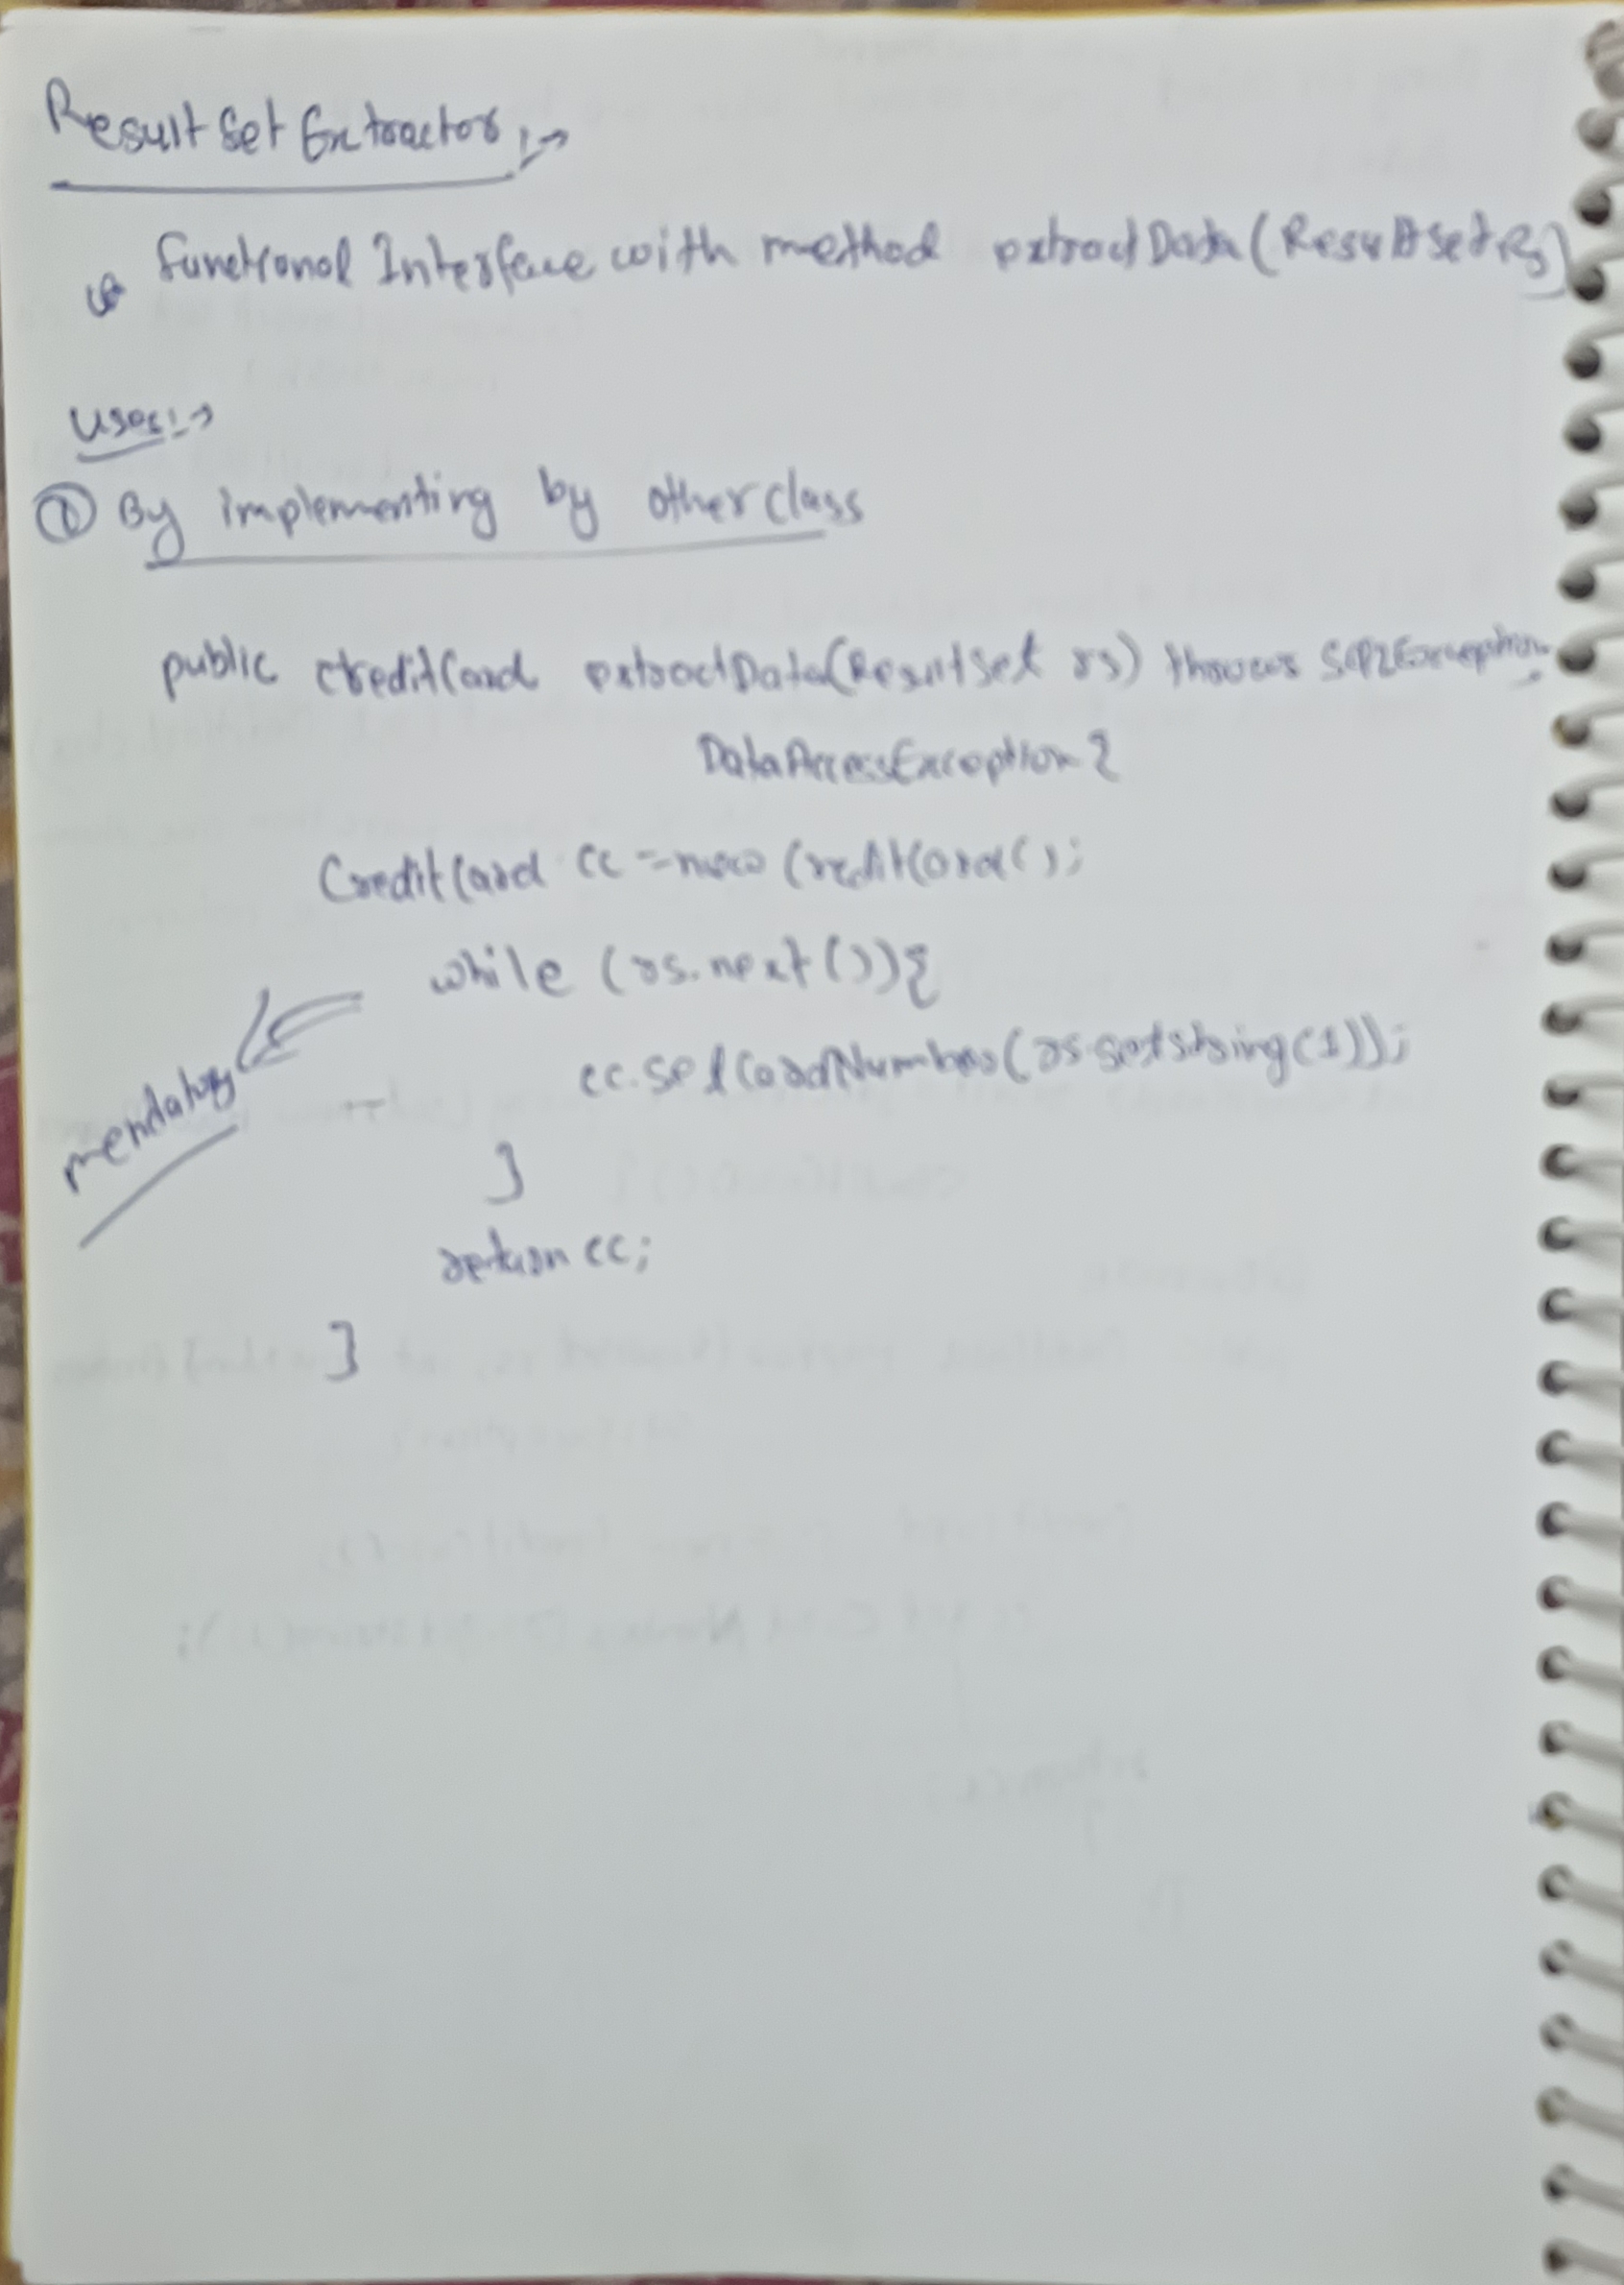 ResultSetExtractor :→
functional Interface with method extractData(ResultSet Rs)
Uses:→
① By implementing by other class
public CreditCard extractData(ResultSet rs) throws SQLException,
DataAccessException {
CreditCard cc = new CreditCard();
while (rs.next()){
cc.setCardNumber(rs.getString(1));
mendatory
}
return cc;
}